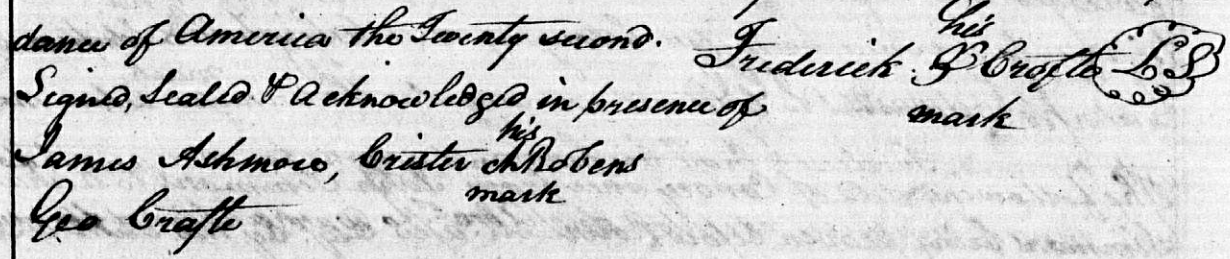 dance of America the Twenty second. Frederick his X Crafts mark LS
Signed, Sealed & acknowledged in presence of
James Ashmore, Crister his Robens mark
Geo Crafts